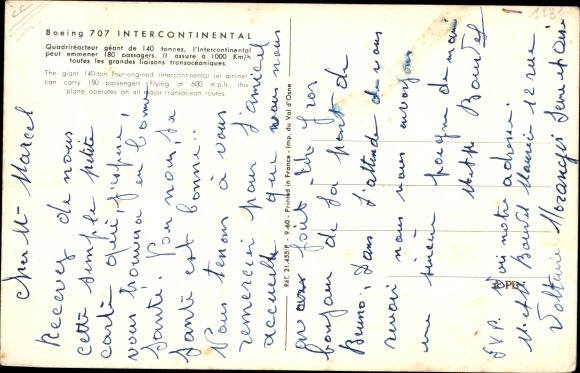 1981
Boeing 707 INTERCONTINENTAL
Quadriréacteur géant de 140 tonnes, l'Intercontinental
peut emmener 180 passagers. Il assure à 1000 Km/h
toutes les grandes liaisons transocéaniques.
The giant 140-ton four-engined intercontinental jet airliner
can carry 180 passengers. Flying at 600 m.p.h., this
plane operates on all major transocean routes.
Cher Mr Marcel
Recevez de nous
cette simple petite
carte qui, j'espère,
vous trouvera en bonne
santé. Pour nous, la
santé est bonne.
Nous tenons à vous
remercier pour l'amical
accueille que vous nous
avez fait. Un gros
bonjour de la part de
Bruno. Dans l'attente de vous
revoir nous vous envoyons
une sincère poignée de main
Mr et Mme Bourdel
Réf. 21.455 P - 9-60 - Printed in France - Imp. du Val d'Osne
S.V.P. Voici notre adresse:
Mr et Mme Maurice 12 rue
Voltaire Morangis Seine et Oise